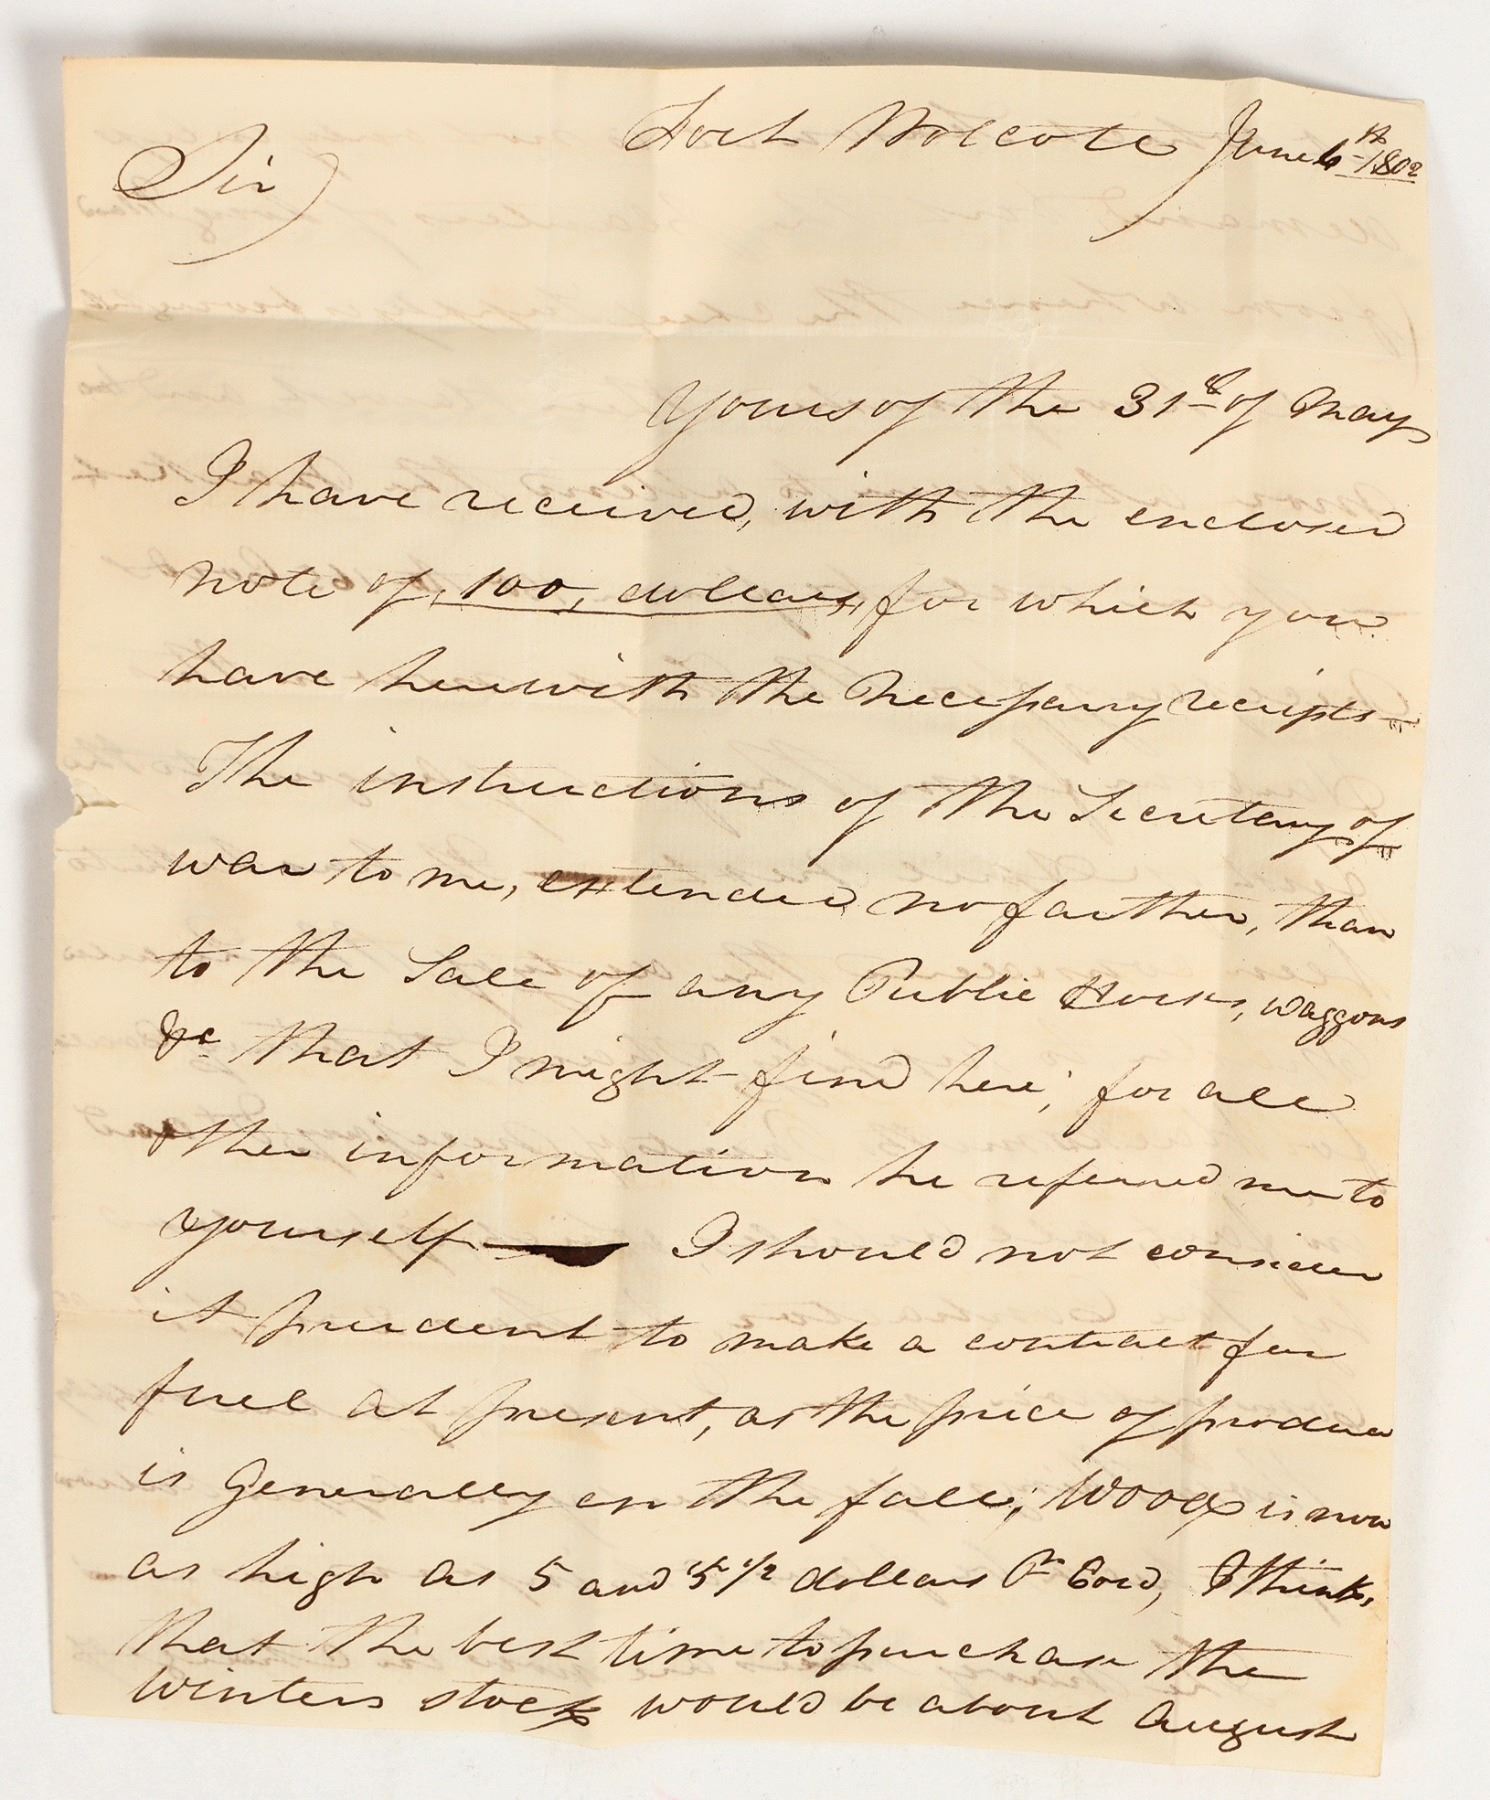 Fort Wolcott June 6th 1802
Sir
Yours of the 31st of May
I have received, with the enclosed
note of, 100, dollars, for which you
have herewith the Necessary receipts
The instructions of the Secretary of
war to me, extended no farther, than
to the Sale of any Public Horses, waggons
&c that I might find here; for all
other information he referred me to
yourself — I should not consider
it prudent to make a contract for
fuel at present, as the price of produce
is Generally on the fall; Wood is now
as high as 5 and 5 1/2 dollars Pr Cord, I think,
that the best time to purchase the
Winters stock would be about August